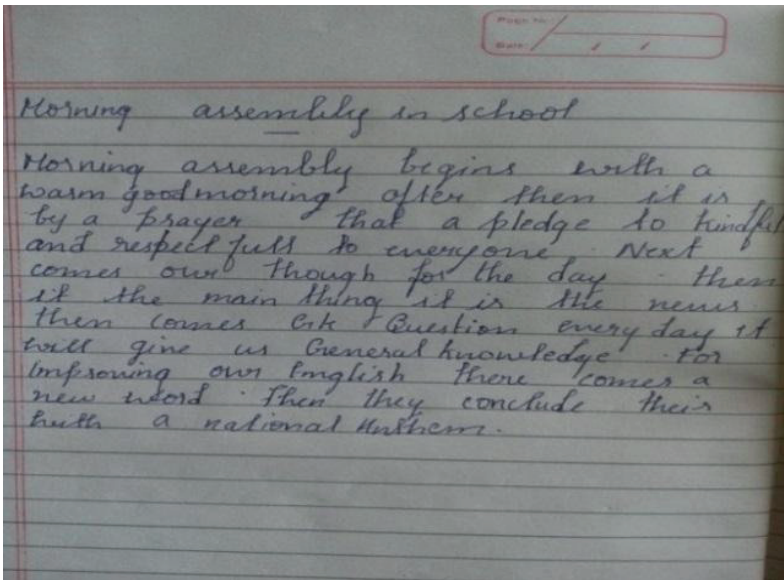 Page No.:
Date: / /
Morning assembly in school
Morning assembly begins with a
warm goodmorning after then it is
by a prayer that a pledge to kindful
and respectfull to everyone. Next
comes our though for the day. then
it the main thing it is the news.
then comes Gk Question every day it
will give us General knowledge. For
improving our English there comes a
new word. Then they conclude their
with a national Anthem.